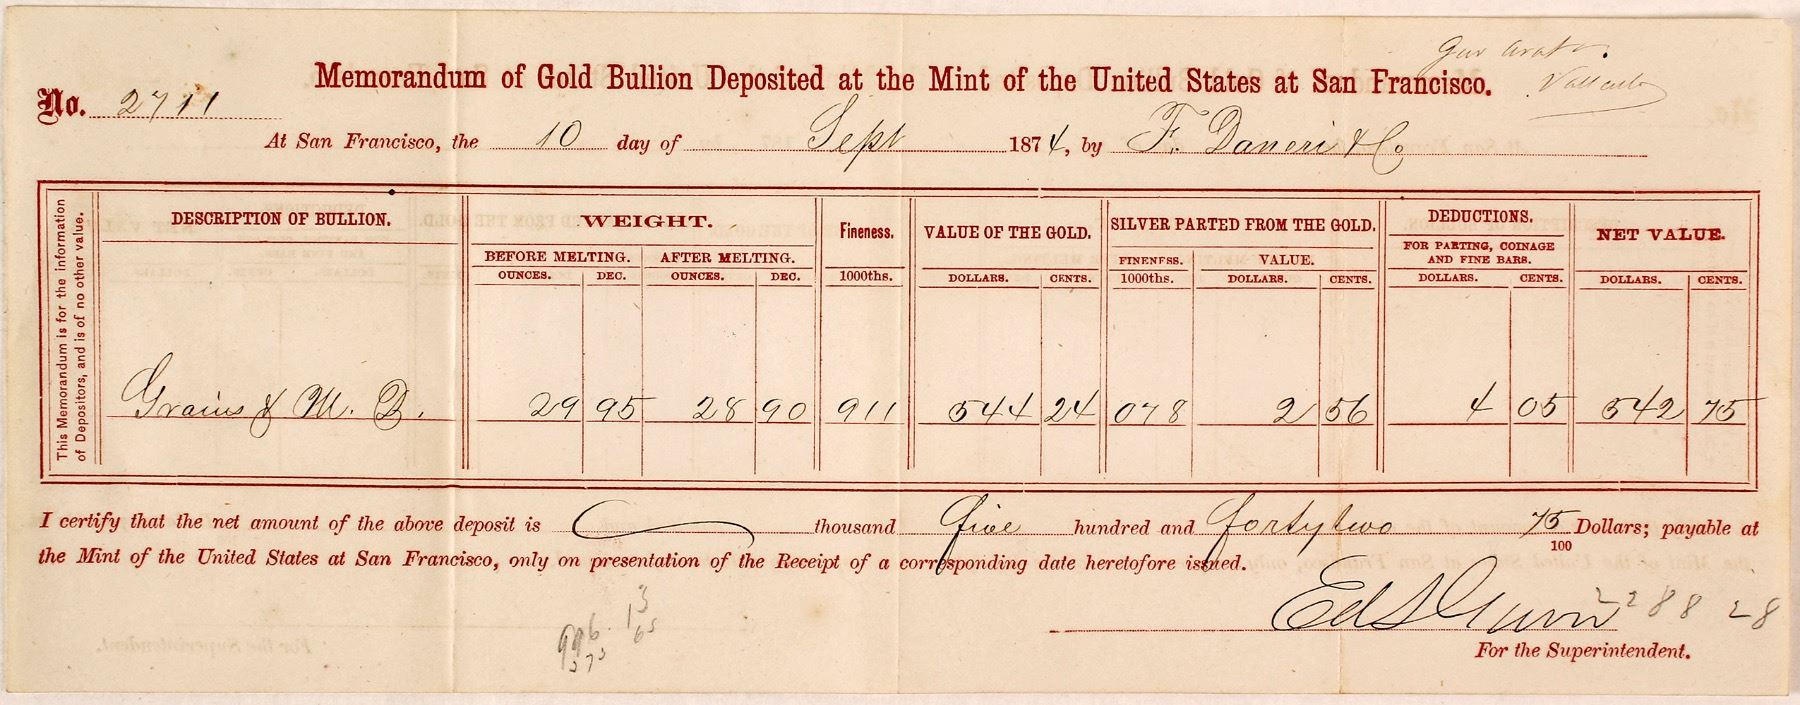 Memorandum of Gold Bullion Deposited at the Mint of the United States at San Francisco.
No. 2711
At San Francisco, the 10 day of Sept 1874, by F. Daneri & Co
This Memorandum is for the information
of Depositors, and is of no other value.
DESCRIPTION OF BULLION. WEIGHT. Fineness. VALUE OF THE GOLD. SILVER PARTED FROM THE GOLD. DEDUCTIONS. NET VALUE.
BEFORE MELTING. AFTER MELTING. FINENESS. VALUE. FOR PARTING, COINAGE
AND FINE BARS.
OUNCES. DEC. OUNCES. DEC. 1000ths. DOLLARS. CENTS. 1000ths. DOLLARS. CENTS. DOLLARS. CENTS. DOLLARS. CENTS.
Grains & M. B. 29 95 28 90 911 544 24 078 2 56 4 05 542 75
I certify that the net amount of the above deposit is thousand five hundred and fortytwo 75/100 Dollars; payable at
the Mint of the United States at San Francisco, only on presentation of the Receipt of a corresponding date heretofore issued.
For the Superintendent.